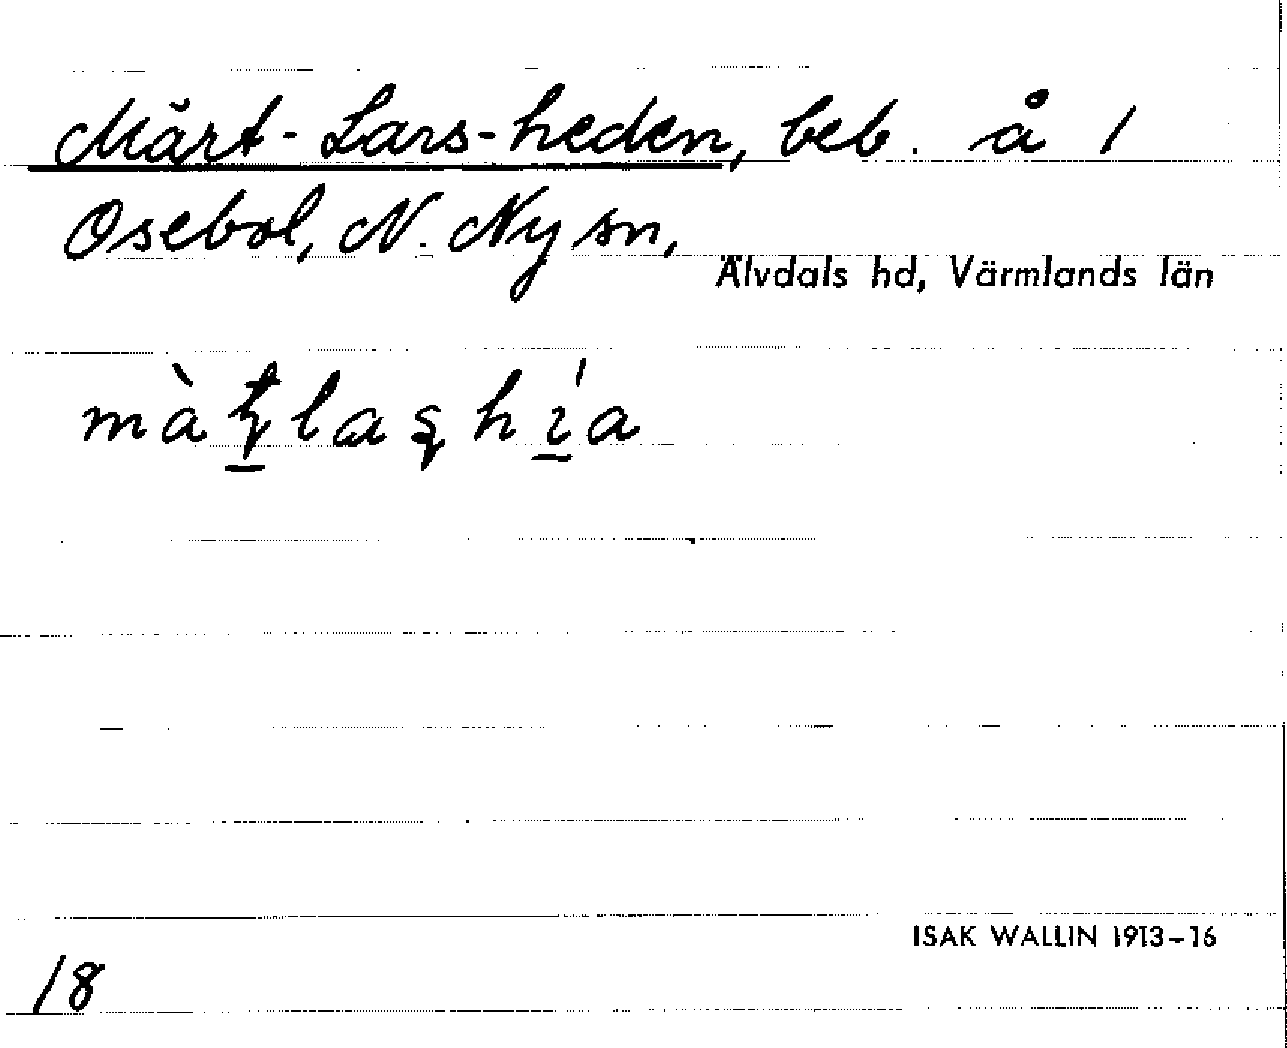 Märt-Lars-heden, beb. å 1
Osebol, N. Ny sn,
Älvdals hd, Värmlands län
màt̠laʂhí̠a
ISAK WALLIN 1913–16
18